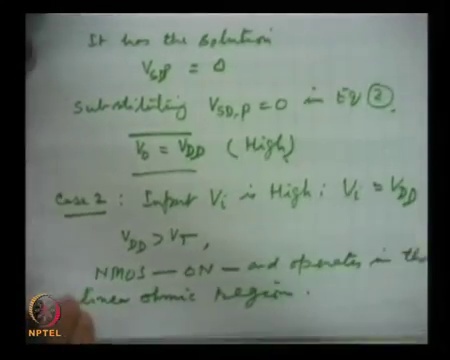 It has the solution
VSDP = 0
Substituting VSD,P = 0 in Eq ②.
Vo = VDD (High)
Case 2: Input Vi is High: Vi = VDD
VDD > VT,
NMOS — ON — and operates in the
linear ohmic region.
NPTEL